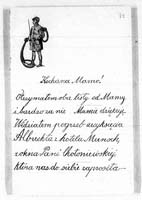 Kochana Mamo!
Otrzymałem oba listy od Mamy
i bardzo za nie Mamie dziękuję.
Widziałem pogrzeb arcyksięcia
Albrechta z hotelu Munsch,
z okna Pani
która nas do siebie zaprosiła